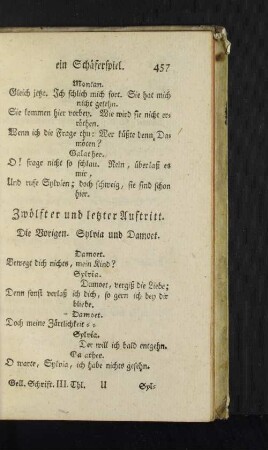 ein Schäferspiel. 457
Montan.
Gleich jetzt. Ich schlich mich fort. Sie hat mich
nicht gesehn.
Sie kommen hier vorbey. Wie wird sie nicht er-
röthen.
Wenn ich die Frage thu: Wer küßte denn Da-
möten?
Galathee.
O! frage nicht so schlau. Nein, überlaß es
mir,
Und rufe Sylvien; doch schweig, sie sind schon
hier.
Zwölfter und letzter Auftritt.
Die Vorigen. Sylvia und Damoet.
Damoet.
Bewegt dich nichts, mein Kind?
Sylvia.
Damoet, vergiß die Liebe;
Denn sonst verlaß ich dich, so gern ich bey dir
bliebe.
Damoet.
Doch meine Zärtlichkeit = =
Sylvia.
Der will ich bald entgehn.
Galathee.
O warte, Sylvia, ich habe nichts gesehn.
Gell. Schrift. III. Thl. U Syl-